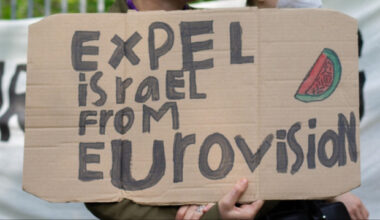 EXPEL
israel
FROM
EUroVision